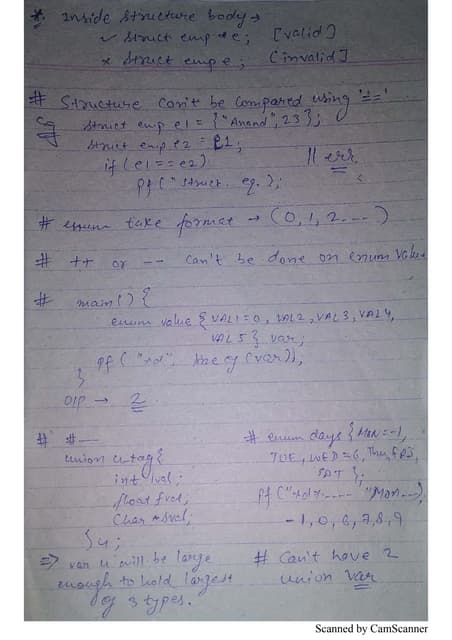 * Inside structure body →
✓ struct emp *e; [valid]
× struct emp e; [invalid]
# Structure can't be compared using '=='
eg struct emp e1 = {"Anand", 23};
struct emp e2 = e1;
if (e1 == e2) // err
pf(" struct. eq.");
# enum take format → (0, 1, 2 ---)
# ++ or -- can't be done on enum value
# main() {
enum value { VAL1=0, VAL2, VAL3, VAL4,
VAL5 } var;
pf ("%d", size of (var));
}
O/P → 2
# #—
union u-tag {
int ival;
float fval;
char *sval;
} u;
⇒ var u will be large
enough to hold largest
of 3 types.
# enum days { MON=-1,
TUE, WED=6, Thu, FRI,
SAT };
pf ("%d%.---- "Mon---)
-1, 0, 6, 7, 8, 9
# Can't have 2
union var
Scanned by CamScanner